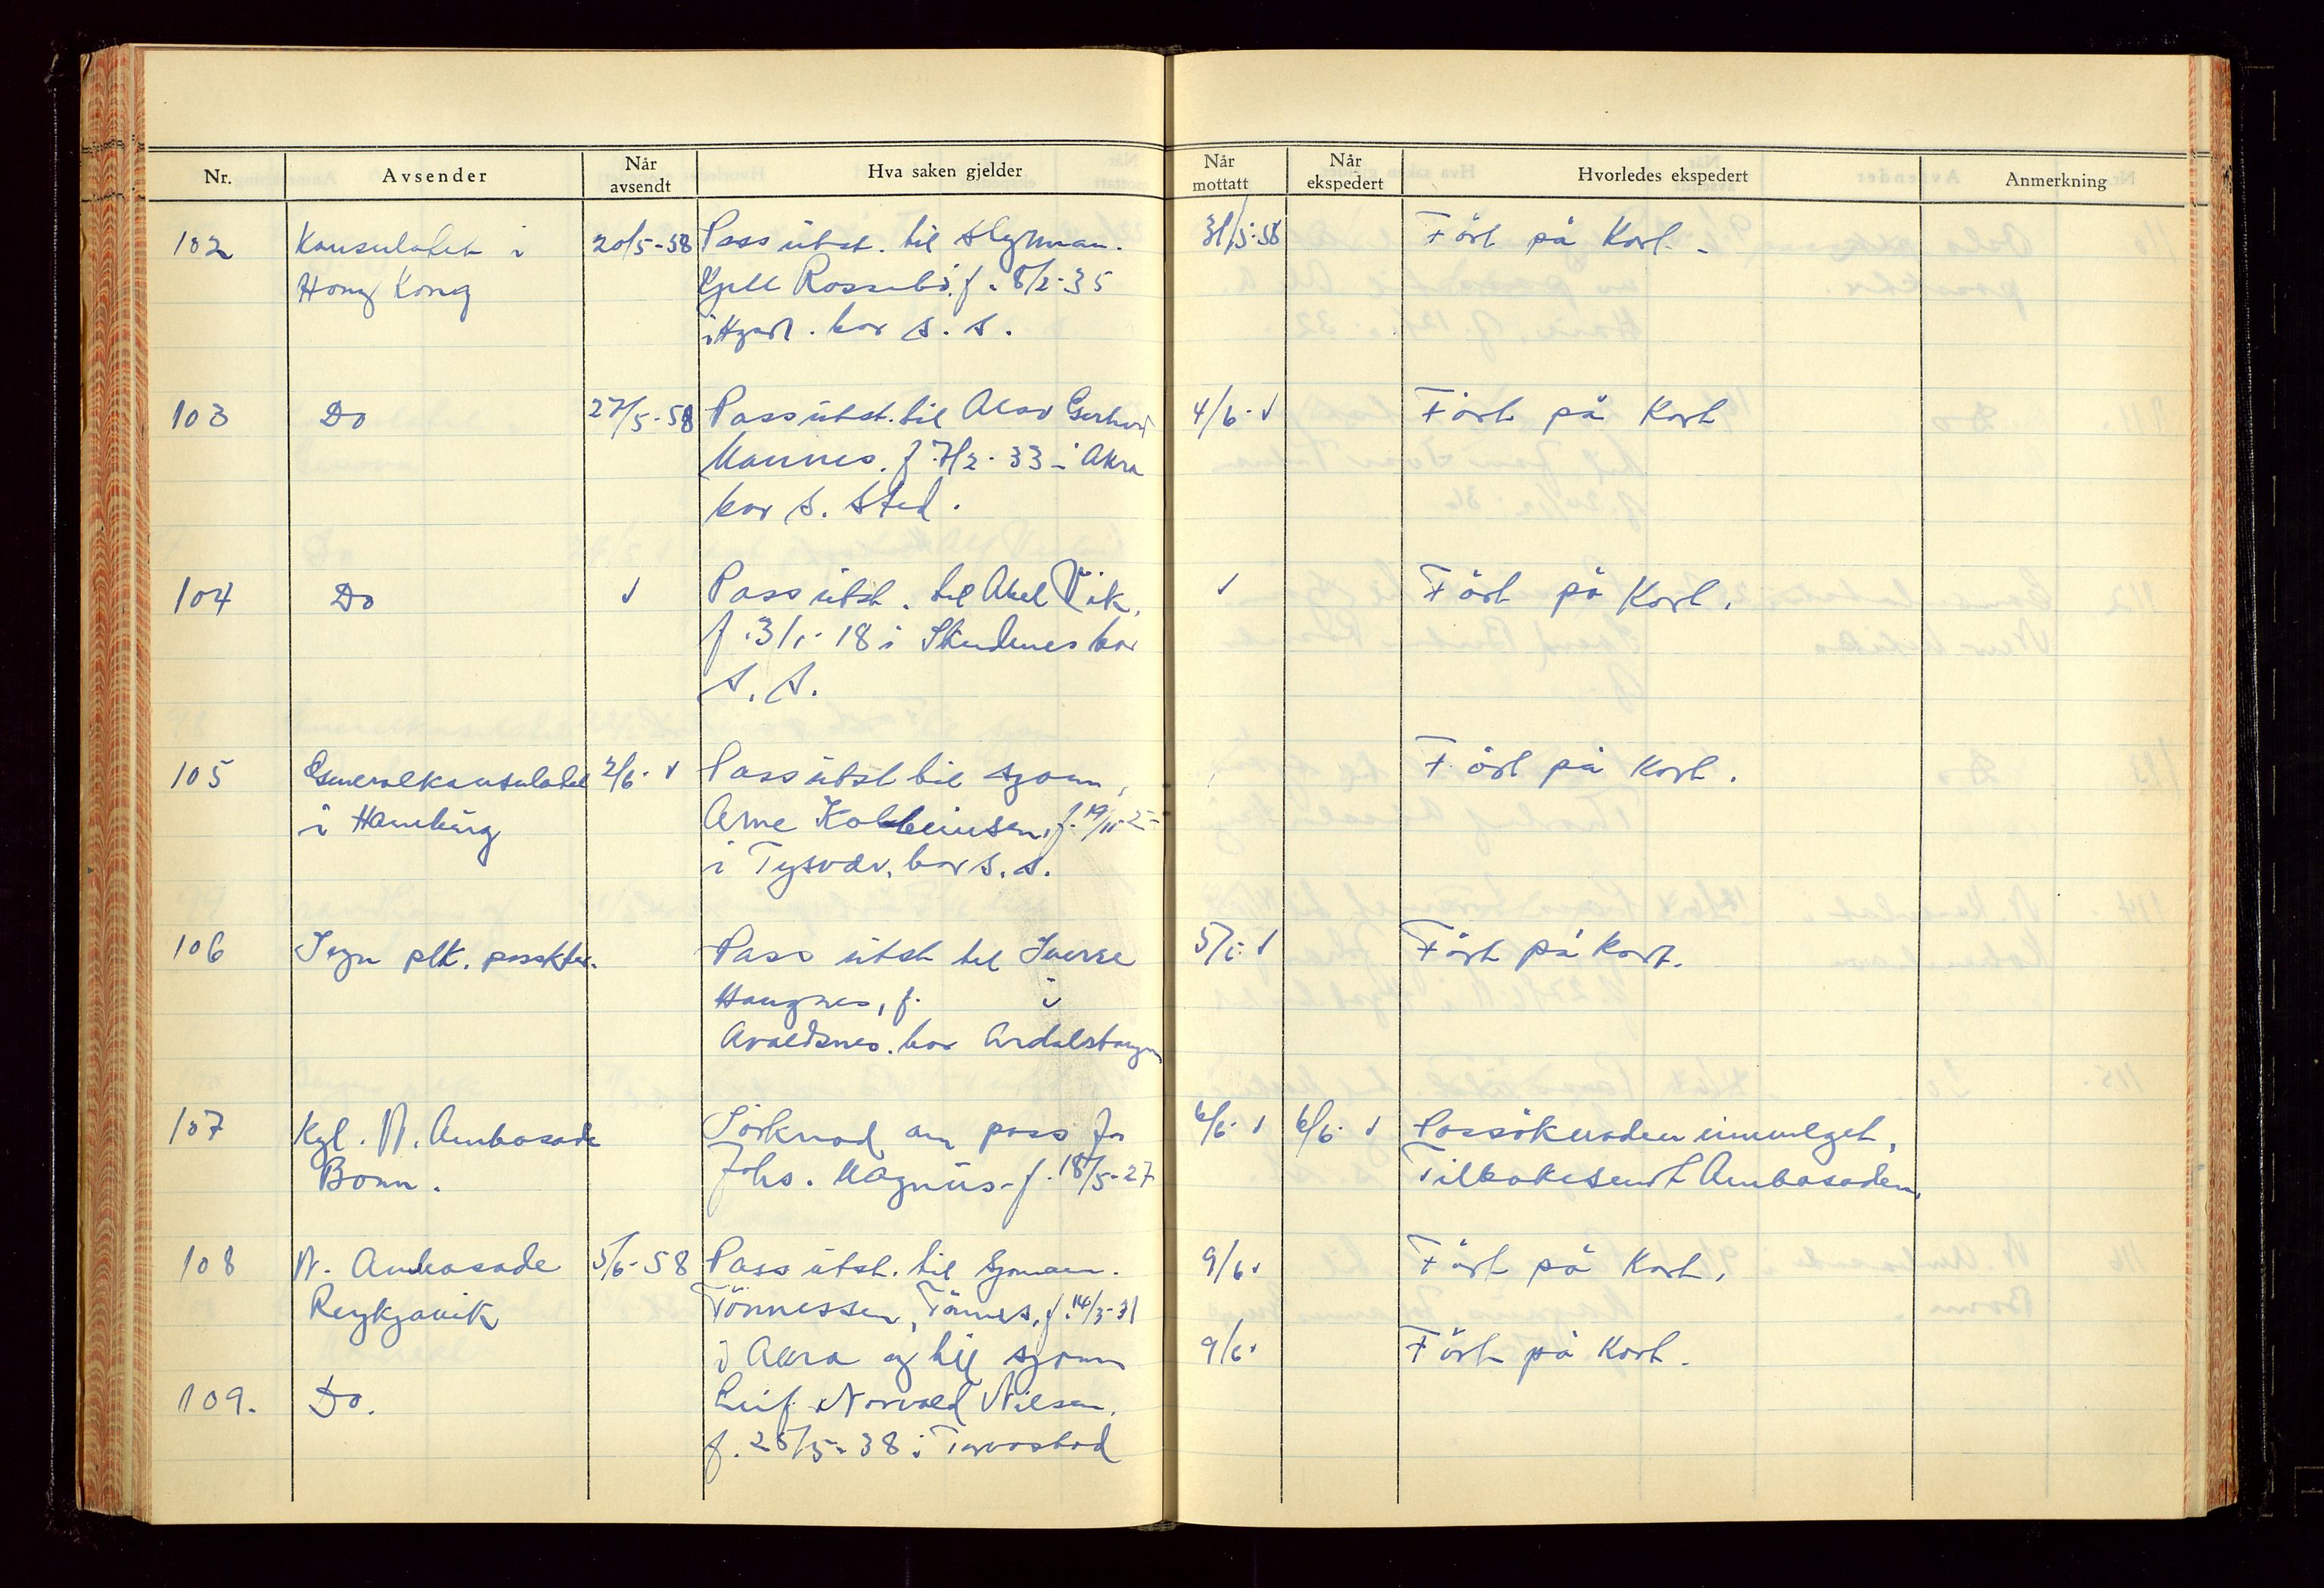 Nr. Avsender Når avsendt Hva saken gjelder Når mottatt Når ekspedert Hvorledes ekspedert Anmerkning
102 Konsulatet i 20/5-58 Pass utst. til styrman. 31/5-58 Ført på Kort.
Hong Kong Kjell Rossebø, f. 8/2-35
i bor s. s.
103 Do 27/5-58 Pass utst. til Alav Gerhard 4/6- ✓ Ført på Kort
Mannes. f. 7/2-33 i Åkra
bor s. sted.
104 Do ✓ Pass utst. til Aksel Vik, ✓ Ført på Kort.
f. 3/1-18 i Skudenes bor
s. s.
105 Generalkonsulatet 2/6- ✓ Pass utst til sjøm, Ført på Kort.
i Hamburg Arne Kolbeinsen, f. 19/11-2
i Tysvær. bor s. s.
106 plk. passktr. Pass utst til Sverre 5/6- ✓ Ført på Kort.
Haugnes, f. i
Avaldsnes. bor Årdalstangen
107 Kgl. N. Ambasade Sørknad om pass for 6/6- ✓ 6/6- ✓ Passøknaden innvilget,
Bonn. Johs. Magnus- f. 18/5-27 Tilbakesendt Ambasaden.
108 N. Ambasade 5/6-58 Pass utst. til Sjømann. 9/6 ✓ Ført på Kort.
Reykjavik Tønnessen, Tønnes, f. 14/3-31
i Åkra og til sjøm 9/6 ✓ Ført på Kort.
109. Do. Leif Norvald Nilsen,
f. 25/5-38 i Torvastad